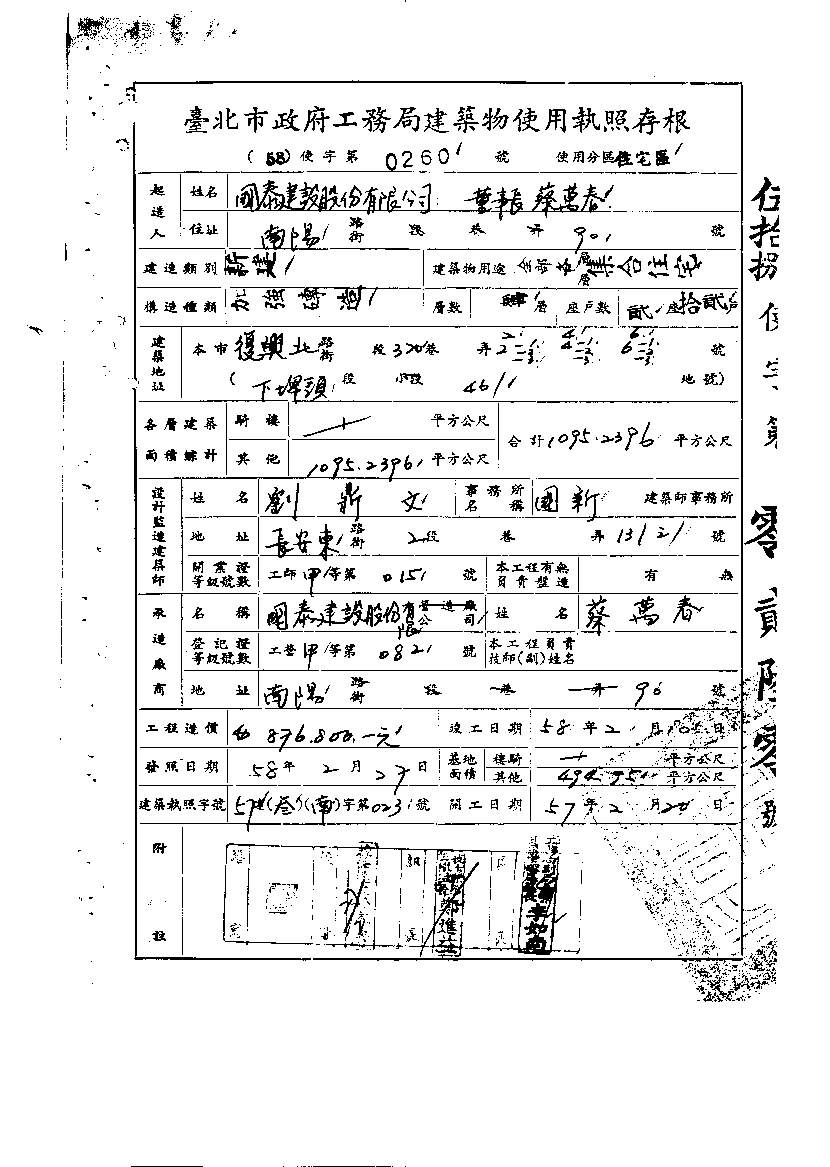 臺北市政府工務局建築物使用執照存根
(58) 使字第 0260 號 使用分區 住宅區
起造人 姓名 國泰建設股份有限公司 董事長 蔡萬春
住址 南陽 路街 段 巷 弄 90 號
建造類別 新建 建築物用途 集合住宅
構造種類 加強磚造 層數 肆層 座戶數 貳座拾貳戶
建築地址 本市 復興北 路街 段 320 巷 弄 號
(下埤頭 段 小段 46/1 地號)
各層建築面積總計 騎樓 平方公尺 合計 1095.2396 平方公尺
其他 1095.2396 平方公尺
設計監造建築師 姓名 劉鼎文 事務所名稱 國新 建築師事務所
地址 長安東 路街 2段 巷 弄 號
開業證等級號數 工師甲等第 0151 號 本工程有無負責監造 有 無
承造廠商 名稱 國泰建設股份有限公司 營造廠 姓名 蔡萬春
登記證等級號數 工登甲等第 082 號 本工程負責技師(副)姓名
地址 南陽 路街 段 巷 弄 90 號
工程造價 876,800.一元 竣工日期 58年2月10日
發照日期 58年2月27日 基地面積 樓騎 平方公尺
其他 平方公尺
建築執照字號 57(叁)(南)字第023號 開工日期 57年2月20日
附註
伍拾捌使字第零貳陸零號